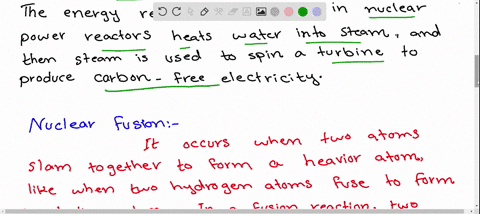 The energy re in nuclear
power reactors heats water into steam, and
then steam is used to spin a turbine to
produce carbon-free electricity.
Nuclear Fusion:-
It occurs when two atoms
slam together to form a heavior atom,
like when two hydrogen atoms fuse to form
In a fusion reaction, two